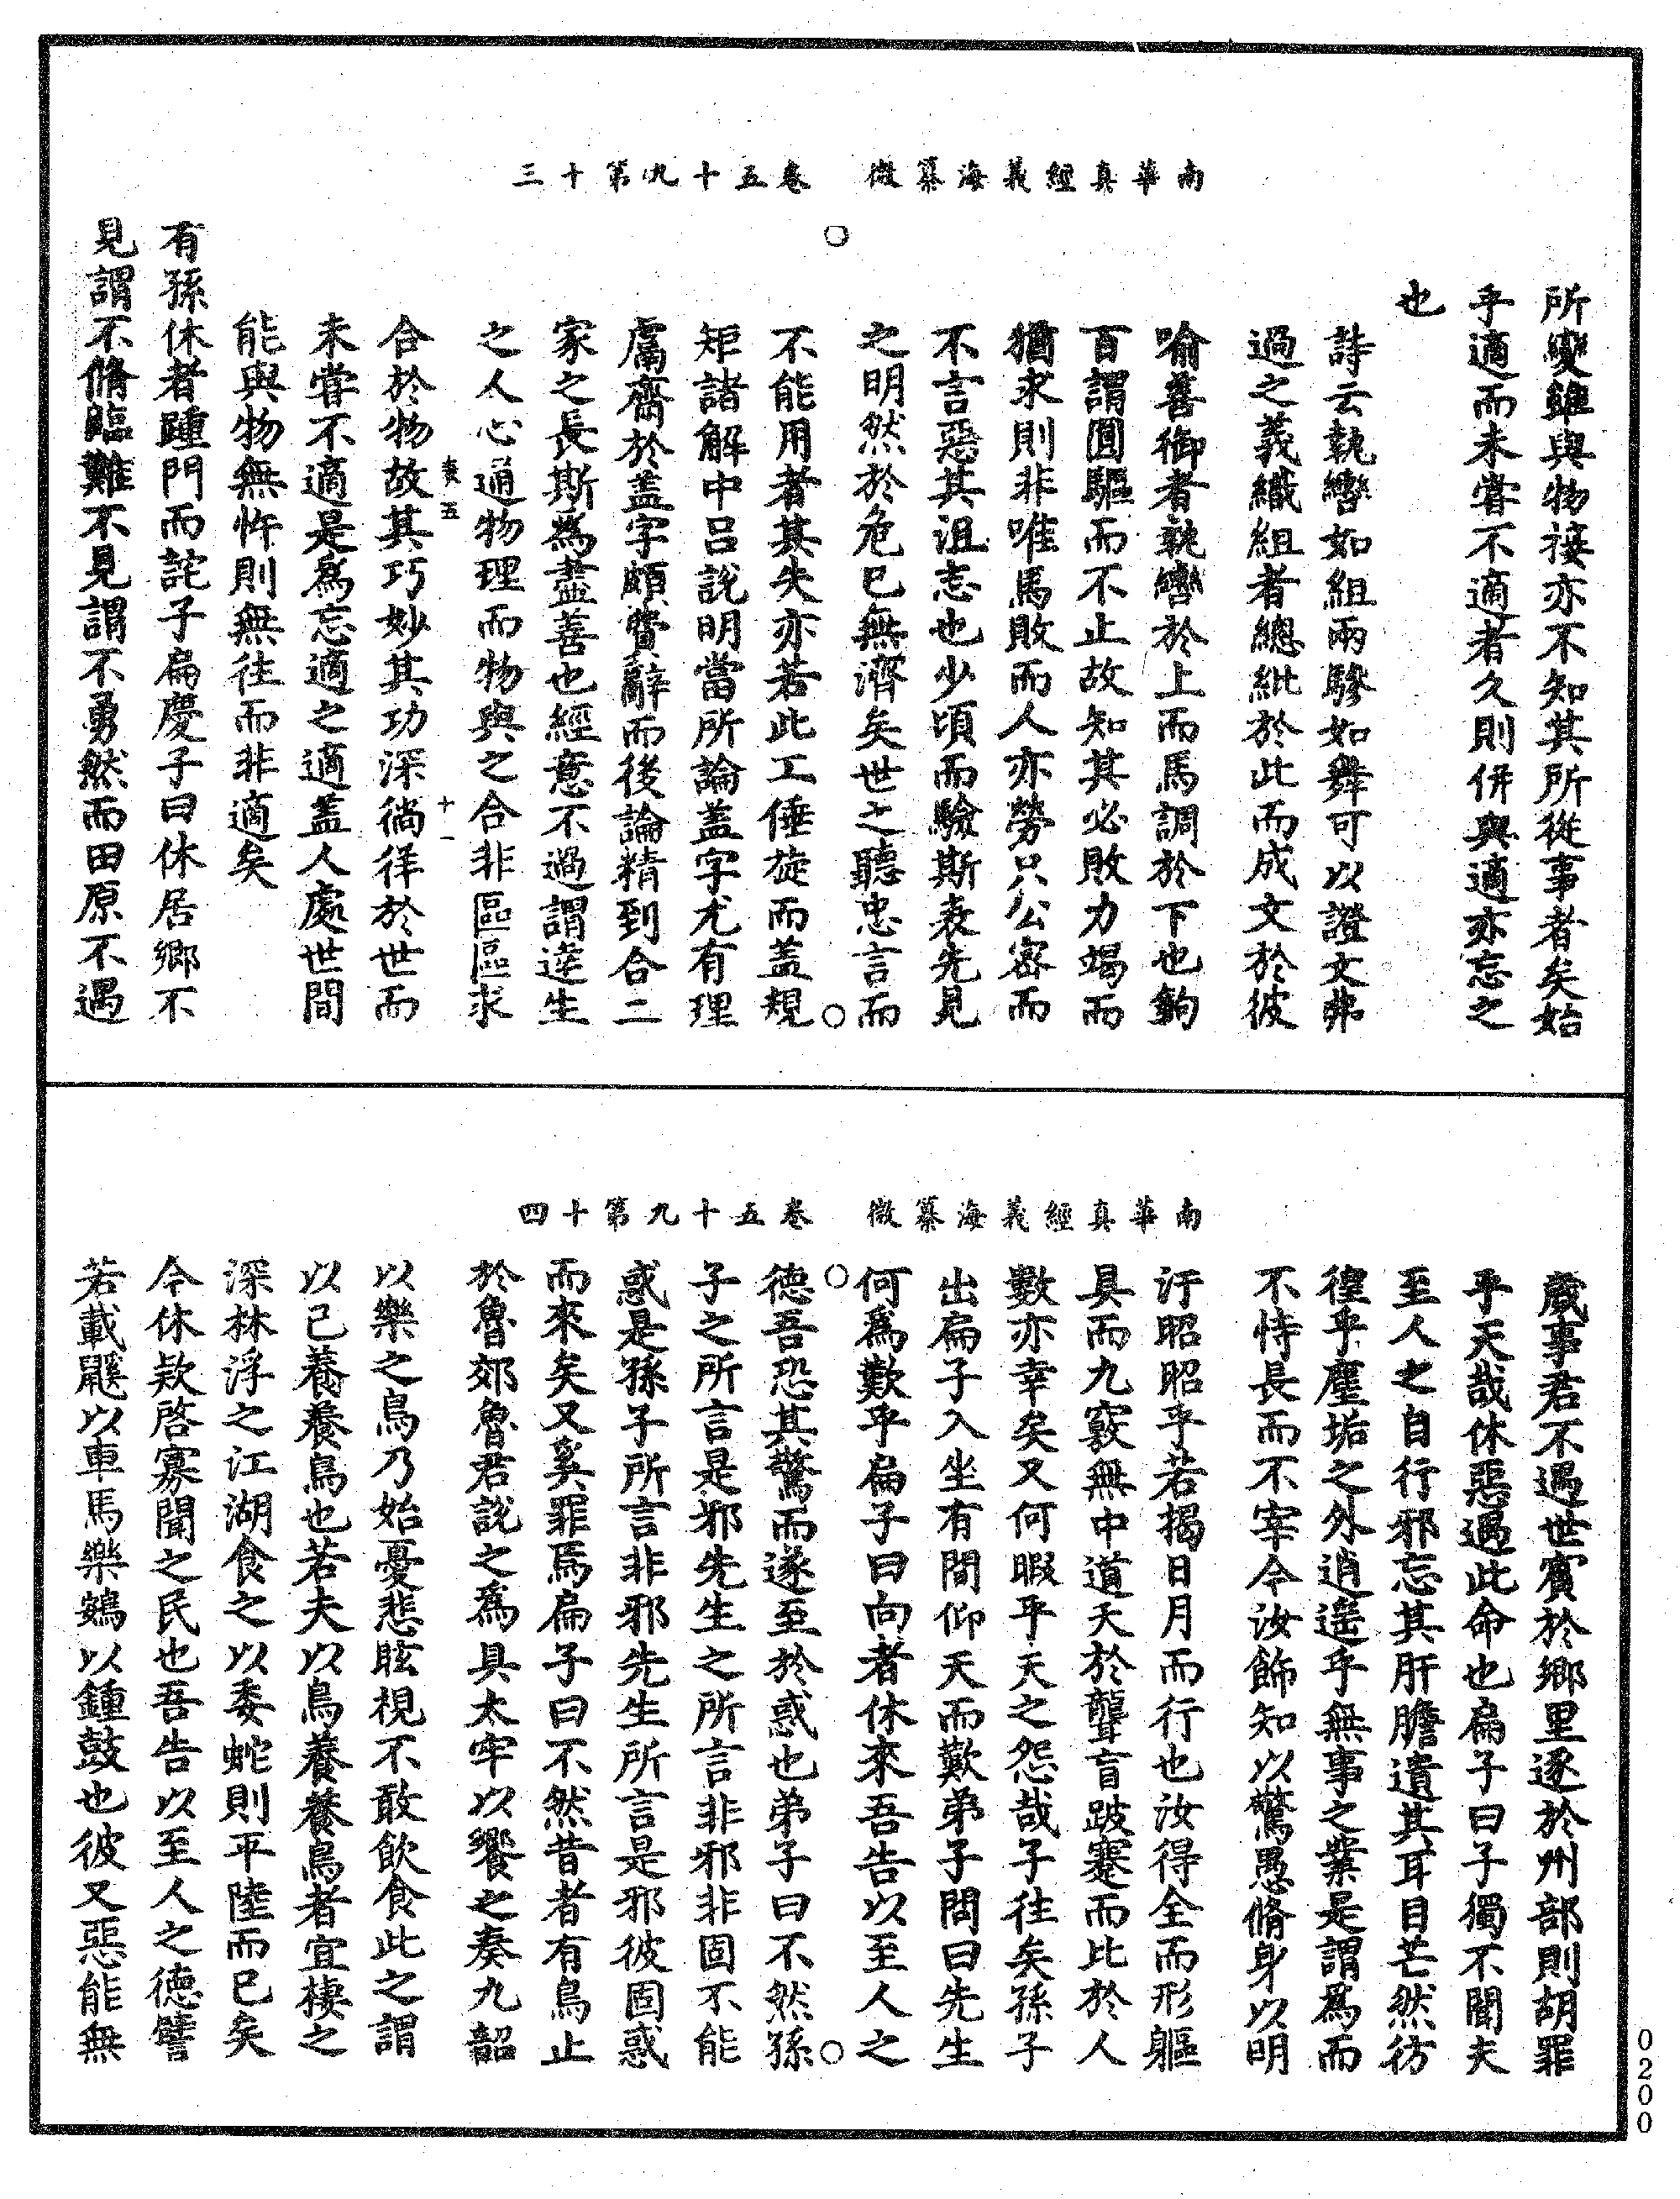 南華真經義海纂微　卷五十九第十三
所變雖與物接亦不知其所從事者矣始
乎適而未甞不適者久則併與適亦忘之
也
詩云執轡如組兩驂如舞可以證文弗
過之義織組者總紕於此而成文於彼
喻善御者執轡於上而馬調於下也鉤
百謂圓驅而不止故知其必敗力竭而
猶求則非唯馬敗而人亦勞只公密而
不言惡其沮志也少頃而驗斯表先見
之明然於危已無濟矣世之聽忠言而
不能用者其失亦若此工倕旋而盖規
矩諸解中呂說明當所論盖字尤有理
鬳齋於盖字頗費辭而後論精到合二
家之長斯為盡善也經意不過謂達生
之人心通物理而物與之合非區區求
表五
十一
合於物故其巧妙其功深徜徉於世而
未甞不適是為忘適之適盖人處世間
能與物無忤則無往而非適矣
有孫休者踵門而詫子扁慶子曰休居鄉不
見謂不脩臨難不見謂不勇然而田原不遇
南華真經義海纂微　卷五十九第十四
歲事君不遇世賓於鄉里逐於州部則胡罪
乎天哉休惡遇此命也扁子曰子獨不聞夫
至人之自行邪忘其肝膽遺其耳目芒然彷
徨乎塵垢之外逍遙乎無事之業是謂為而
不恃長而不宰今汝飾知以驚愚脩身以明
汙昭昭乎若揭日月而行也汝得全而形軀
具而九竅無中道夭於聾盲跛蹇而比於人
數亦幸矣又何暇乎天之怨哉子往矣孫子
出扁子入坐有間仰天而歎弟子問曰先生
何為歎乎扁子曰向者休來吾告以至人之
德吾恐其驚而遂至於惑也弟子曰不然孫
子之所言是邪先生之所言非邪非固不能
惑是孫子所言非邪先生所言是邪彼固惑
而來矣又奚罪焉扁子曰不然昔者有鳥止
於魯郊魯君說之為具太牢以饗之奏九韶
以樂之鳥乃始憂悲眩視不敢飲食此之謂
以己養養鳥也若夫以鳥養養鳥者宜棲之
深林浮之江湖食之以委蛇則平陸而已矣
今休欵啓寡聞之民也吾告以至人之德譬
若載鼷以車馬樂鴳以鍾鼓也彼又惡能無
0200